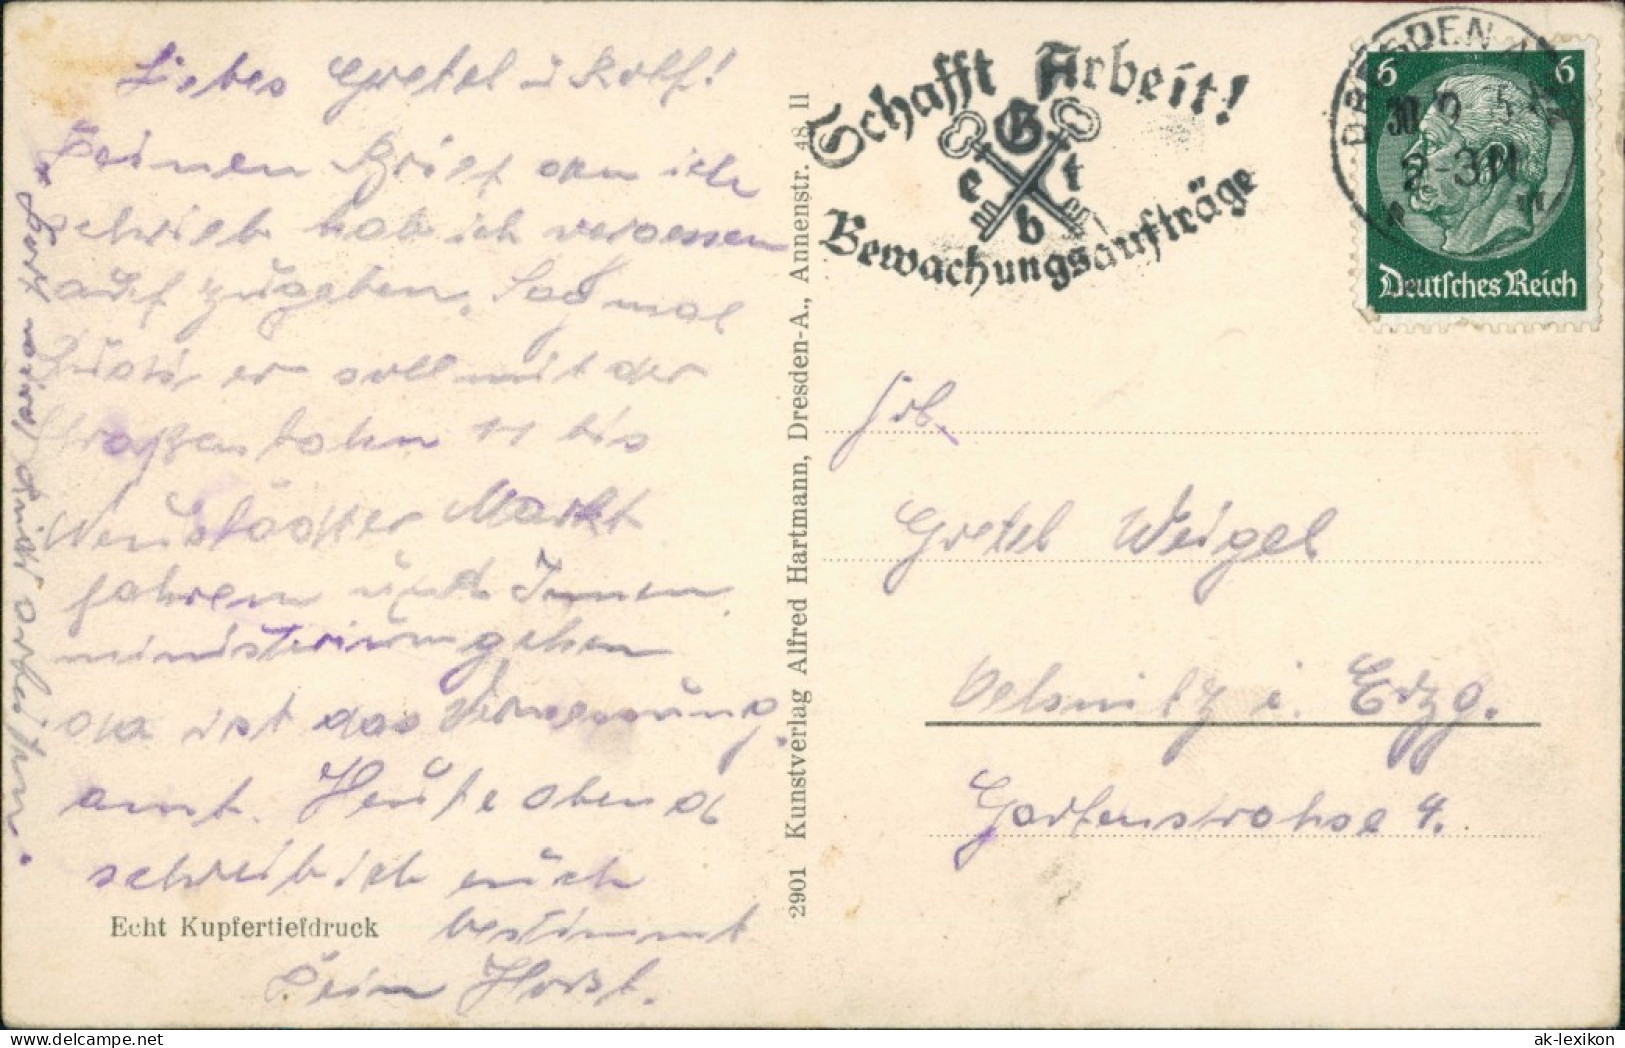 Liebes Gretel u Rolf!
Deinen Brief den ich
schrieb hab ich vergessen
auf zugeben. Sag mal
er soll mit der
Straßenbahn 11 bis
Neustädter Markt
fahren und Innen
ministerium gehen
da ist das Vermessung
amt. Heute abend
schreib ich euch
bestimmt
Dein Horst.
Echt Kupfertiefdruck
2901 Kunstverlag Alfred Hartmann, Dresden-A., Annenstr. 48 II
Schafft Arbeit!
Gebt
Bewachungsaufträge
DRESDEN
30 9
2-3
6 6
Deutsches Reich
Gretel Weigel
Oelsnitz i. Erzg.
Gartenstrahse 4.
ak-ansichtskarten.de
ak-lexikon